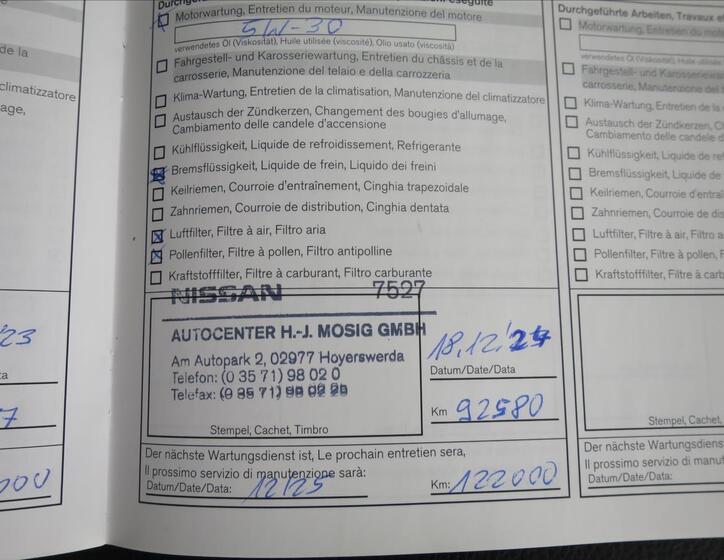 Motorwartung, Entretien du moteur, Manutenzione del motore
5W-30
verwendetes Öl (Viskosität), Huile utilisée (viscosité), Olio usato (viscosità)
Fahrgestell- und Karosseriewartung, Entretien du châssis et de la
carrosserie, Manutenzione del telaio e della carrozzeria
Klima-Wartung, Entretien de la climatisation, Manutenzione del climatizzatore
Austausch der Zündkerzen, Changement des bougies d'allumage,
Cambiamento delle candele d'accensione
Kühlflüssigkeit, Liquide de refroidissement, Refrigerante
Bremsflüssigkeit, Liquide de frein, Liquido dei freini
Keilriemen, Courroie d'entraînement, Cinghia trapezoidale
Zahnriemen, Courroie de distribution, Cinghia dentata
Luftfilter, Filtre à air, Filtro aria
Pollenfilter, Filtre à pollen, Filtro antipolline
Kraftstofffilter, Filtre à carburant, Filtro carburante
NISSAN 7527
AUTOCENTER H.-J. MOSIG GMBH
Am Autopark 2, 02977 Hoyerswerda
Telefon: (0 35 71) 98 02 0
Telefax: (0 35 71) 98 02 20
Stempel, Cachet, Timbro
18.12.'24
Datum/Date/Data
Km 92580
Der nächste Wartungsdienst ist, Le prochain entretien sera,
Il prossimo servizio di manutenzione sarà:
Datum/Date/Data: 12/25 Km: 122000
de la
climatizzatore
mage,
Durchgeführte Arbeiten, Travaux
Motorwartung, Entretien du mot
Fahrgestell- und Karosseriewart
carrosserie, Manutenzione del t
Klima-Wartung, Entretien de la c
Austausch der Zündkerzen, C
Cambiamento delle candele d
Kühlflüssigkeit, Liquide de re
Bremsflüssigkeit, Liquide de
Keilriemen, Courroie d'entra
Zahnriemen, Courroie de dis
Luftfilter, Filtre à air, Filtro a
Pollenfilter, Filtre à pollen, F
Kraftstofffilter, Filtre à carb
Stempel, Cachet,
Der nächste Wartungsdiens
Il prossimo servizio di manu
Datum/Date/Data: